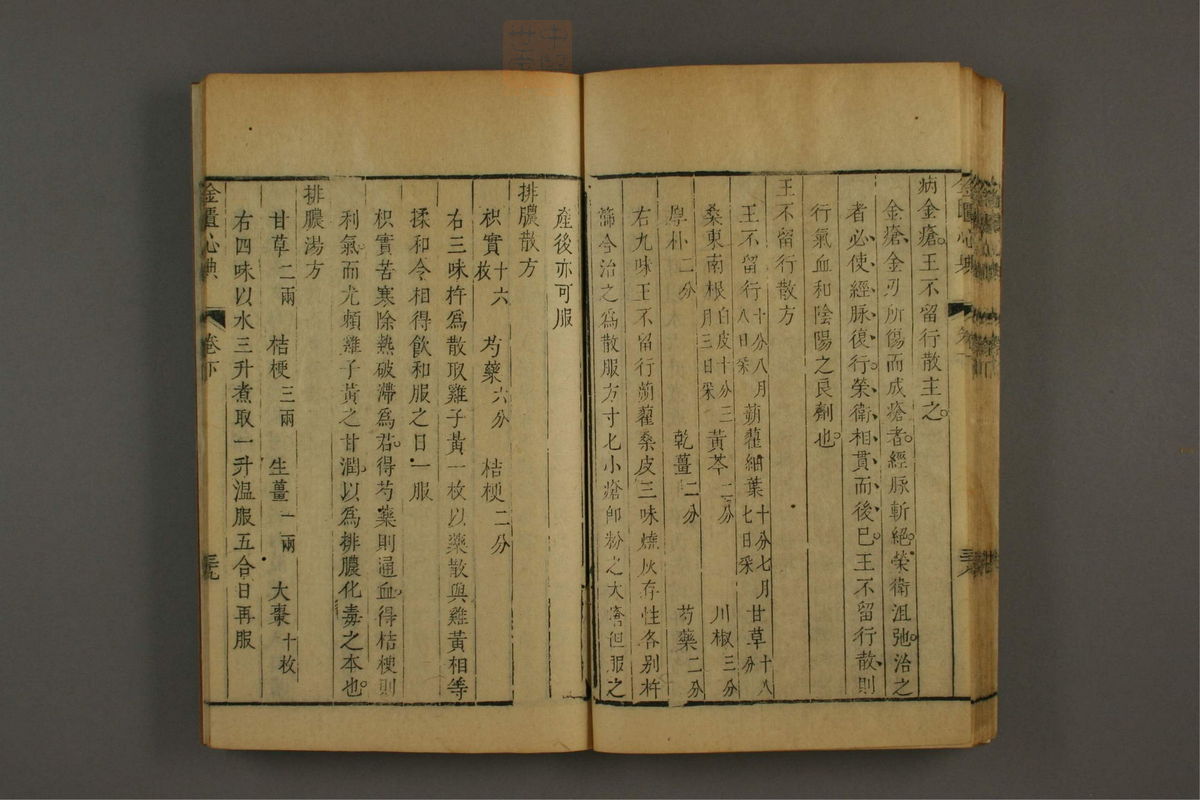 病金瘡。王不留行散主之。
金瘡金刃所傷而成瘡者。經脉斬絕。榮衛沮弛。治之
者必使經脉復行。榮衛相貫而後已。王不留行散則
行氣血和陰陽之良劑也。
王不留行散方
王不留行十分八月八日采 蒴藋細葉十分七月七日采 甘草十八分
桑東南根白皮十分三月三日采 黃芩二分 川椒三分
厚朴二分 乾薑二分 芍藥二分
右九味王不留行蒴藋桑皮三味燒灰存性各别杵
篩合治之爲散服方寸匕小瘡卽粉之大瘡但服之
產後亦可服
排膿散方
枳實十六枚 芍藥六分 桔梗二分
右三味杵爲散取雞子黃一枚以藥散與雞黃相等
揉和令相得飮和服之日一服
枳實苦寒除熱破滯爲君。得芍藥則通血。得桔梗則
利氣。而尤賴雞子黃之甘潤。以爲排膿化毒之本也。
排膿湯方
甘草二兩 桔梗三兩 生薑一兩 大棗十枚
右四味以水三升煮取一升温服五合日再服
金匱心典 卷下